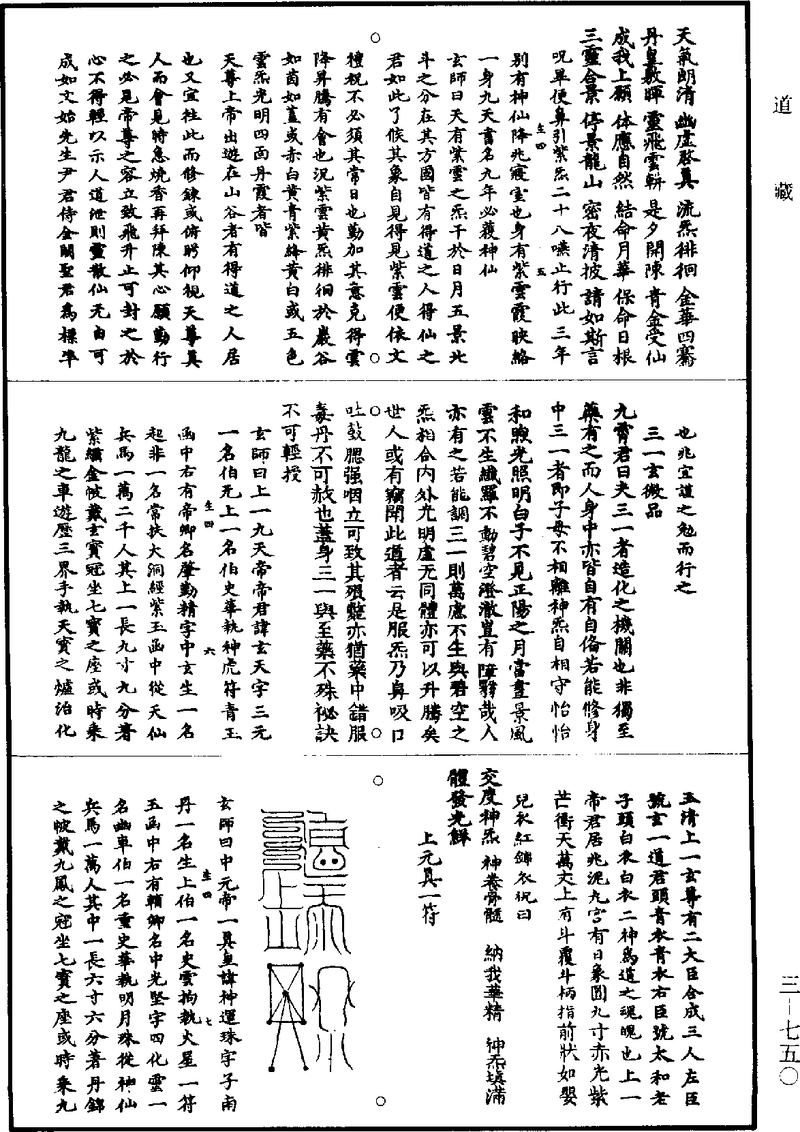 道藏
天氣朗清 幽虛啓真 流炁徘徊 金華四騫
丹皇敷暉 靈飛雲軿 是夕開陳 青金受仙
成我上願 体應自然 結命月華 保命日根
三靈合景 停景龍山 密夜清披 請如斯言
呪畢便鼻引紫炁二十八嚥止行此三年
別有神仙降兆寢室也身有紫雲霞映絡
一身九天書名九年必獲神仙
玄師曰天有紫雲之炁干於日月五景北
斗之分在其方國皆有得道之人得仙之
君如此了候其象自見得見紫雲便依文
禮祝不必須其常日也勤加其意克得雲
降昇騰有會也況紫雲黄炁徘徊於巖谷
如茵如蓋或赤白黄青紫絳黄白或五色
雲炁光明四面丹霞者皆
天尊上帝出遊在山谷者有得道之人居
也又宜往此而修鍊或俯眄仰視天尊真
人而會見時急燒香再拜陳其心願勤行
之必見帝尊之容立致飛升止可封之於
心不得輕以示人道泄則靈散仙无由可
成如文始先生尹君侍金闕聖君為標準
也兆宜道之勉而行之
三一玄微品
九霄君曰夫三一者造化之機關也非獨至
藥有之而人身中亦皆自有自俻若能修身
中三一者即子母不相離神炁自相守怡怡
和煦光照明白子不見正陽之月當晝景風
雲不生纖羅不動碧空澄澈豈有障翳哉人
亦有之若能調三一則萬慮不生與碧空之
炁相合内外光明虛无同體亦可以升騰矣
世人或有竊聞此道者云是服炁乃鼻吸口
吐鼓腮强咽立可致其殞斃亦猶藥中錯服
毒丹不可救也蓋身三一與至藥不殊祕訣
不可輕授
玄師曰上一九天帝帝君諱玄天字三元
一名伯无上一名伯史華執神虎符青玉
函中右有帝卿名肇勤精字中玄生一名
起非一名常扶大洞經紫玉函中從天仙
兵馬一萬二千人其上一長九寸九分著
紫繡金帔戴玄寶冠坐七寶之座或時乘
九龍之車遊歷三界手執天寶之爐治化
玉清上一玄尊有二大臣合成三人左臣
號玄一道君頭青衣青衣右臣號太和老
子頭白衣白衣二神爲道之魂魄也上一
帝君居兆泥丸宮有日象圓九寸赤光紫
芒衝天萬丈上有斗覆斗柄指前狀如嬰
兒衣紅錦衣祝曰
交度神炁 神養骨髓 納我華精 神炁填滿
體發光鮮
上元真一符
玄師曰中元帝一真皇諱神運珠字子南
丹一名生上伯一名史雲拘執火星一符
玉函中右有輔卿名中光堅字四化雲一
名幽車伯一名靈史華執明月珠從神仙
兵馬一萬人其中一長六寸六分著丹錦
之帔戴九鳳之冠坐七寶之座或時乘九
三—七五〇